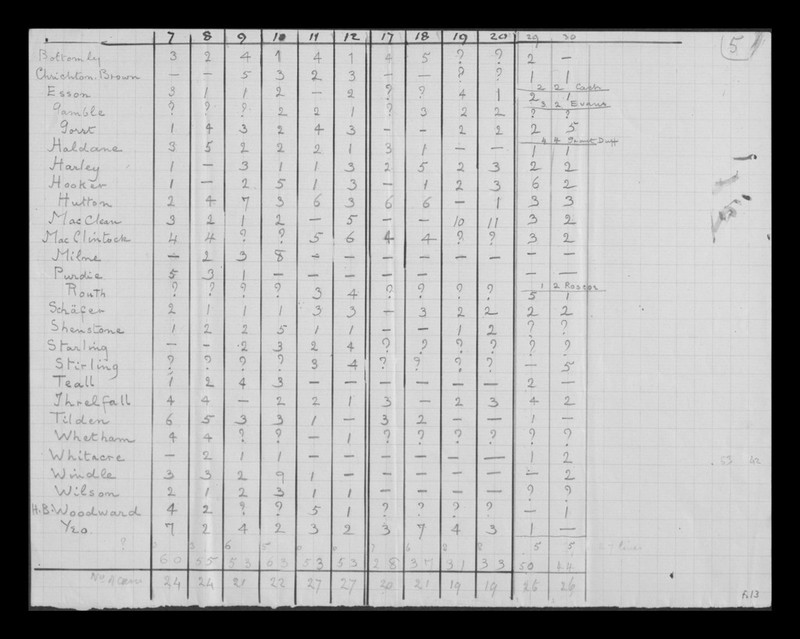 7 8 9 10 11 12 17 18 19 20 29 30
5
Bottomley 3 2 4 1 4 1 4 5 ? ? 2 —
Chrichton. Brown — — 5 3 2 3 — — ? ? 1 1
2 2 Cash
Esson 3 1 1 2 — 2 ? ? 4 1 2 1
3 2 Evans
Gamble ? ? ? 2 2 1 ? 3 2 2 ? ?
Gorst 1 4 3 2 4 3 — — 2 2 2 5
4 4 Grant Duff
Haldane 3 5 2 2 2 1 3 1 — — 1 1
Harley 1 — 3 1 1 3 2 5 2 3 2 2
Hooker 1 — 2 5 1 3 — 1 2 3 6 2
Hutton 2 4 7 3 6 3 6 6 — 1 3 3
MacClean 3 2 1 2 — 5 — — 10 11 3 2
MacClintock 4 4 ? ? 5 6 4 4 ? ? 3 2
Milne — 2 3 8 — — — — — — — —
Purdie 5 3 1 — — — — — — —
1 2 Roscoe
Routh ? ? ? ? 3 4 ? ? ? ? 5 1
Schäfer 2 1 1 1 3 3 — 3 2 2 2 2
Shenstone 1 2 2 5 1 1 — — 1 2 ? ?
Starling — — 2 3 2 4 ? ? ? ? ? ?
Stirling ? ? ? ? 3 4 ? ? ? ? — 5
Teall 1 2 4 3 — — — — — — 2 —
Threlfall 4 4 — 2 2 1 3 — 2 3 4 2
Tilden 6 5 3 3 1 — 3 2 — — 1 —
Whetham 4 4 ? ? — 1 ? ? ? ? ? ?
Whitacre — 2 1 1 — — — — — — 1 2
Windle 3 3 2 9 1 — — — — — — 2
Wilson 2 1 2 3 1 1 — — — — ? ?
H.B. Woodward 4 2 ? ? 5 1 ? ? ? ? — 1
Yeo 7 2 4 2 3 2 3 7 4 3 1 —
60 55 53 63 53 53 28 37 31 33 50 44
24 24 21 22 27 27 20 21 19 19 26 26
f.13